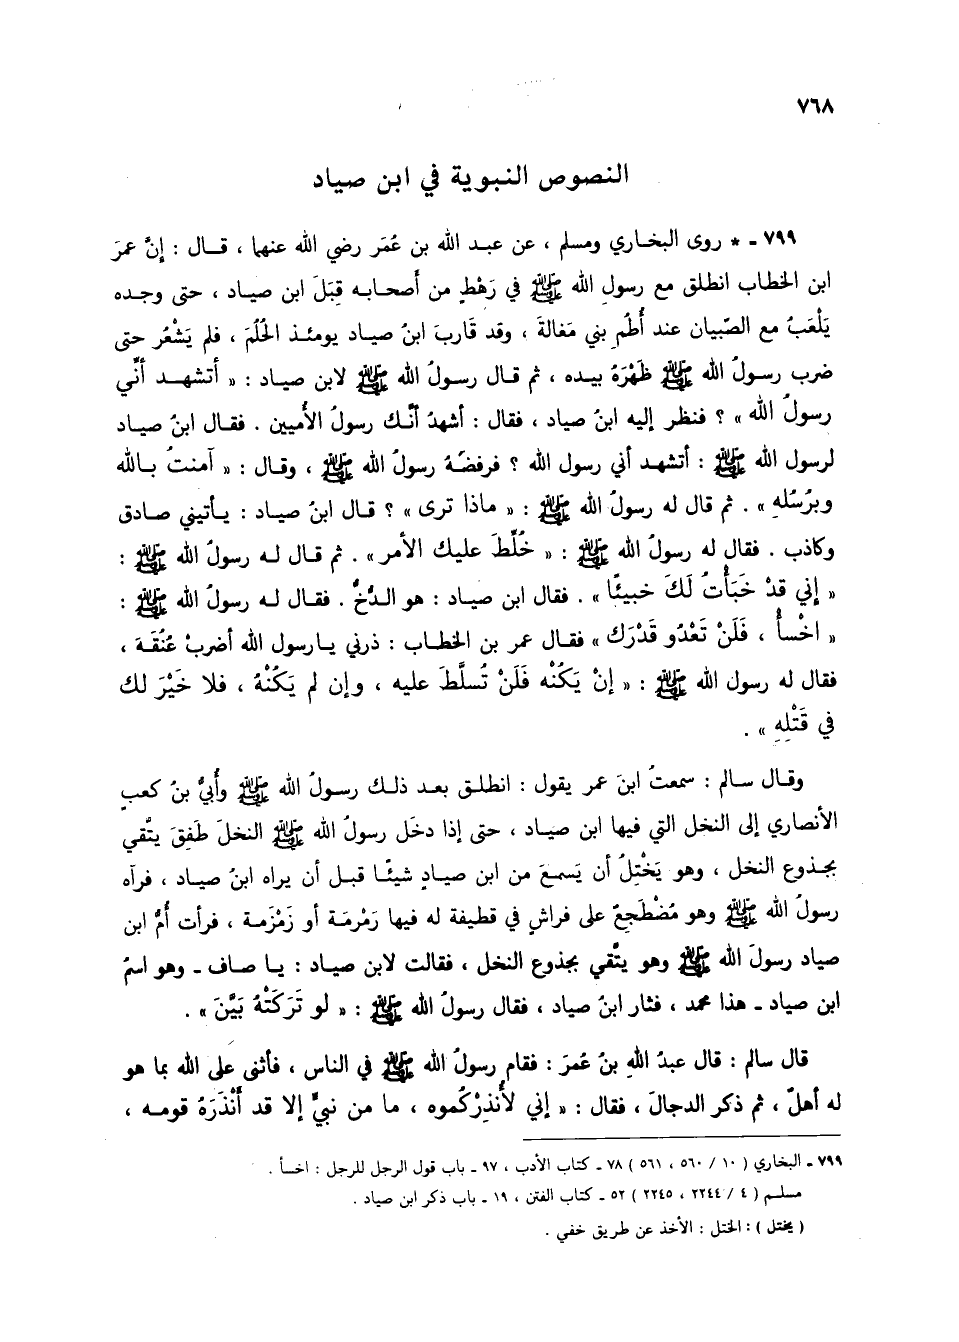 ٧٦٨
النصوص النبوية في ابن صياد
٧٩٩ - * روى البخاري ومسلم ، عن عبد الله بن عُمَر رضي الله عنهما ، قال : إنَّ عمرَ
ابن الخطاب انطلق مع رسولِ الله ﷺ في رَهْطٍ من أصحابه قِبَلَ ابن صياد ، حتى وجده
يَلْعَبُ مع الصّبيان عند أُطُمِ بني مَغالةَ ، وقد قَاربَ ابنُ صياد يومئذ الحُلُمَ ، فلم يَشْعُر حتى
ضرب رسولُ الله ﷺ ظَهْرَهُ بيده ، ثم قال رسولُ الله ﷺ لابن صياد : « أتشهد أنِّي
رسولُ الله » ؟ فنظر إليه ابنُ صياد ، فقال : أشهدُ أنَّك رسولُ الأميين . فقال ابنُ صياد
لرسول الله ﷺ : أتشهد أني رسول الله ؟ فرفضَهُ رسولُ الله ﷺ ، وقال : « آمنتُ بالله
وبرُسُلهِ » . ثم قال له رسولُ الله ﷺ : « ماذا ترى » ؟ قال ابنُ صياد : يأتيني صادق
وكاذب . فقال له رسولُ الله ﷺ : « خُلِّطَ عليك الأمر » . ثم قال له رسولُ الله ﷺ :
« إني قدْ خَبَأْتُ لَكَ خبيئًا » . فقال ابن صياد : هو الدُّخُّ . فقال له رسولُ الله ﷺ :
« اخْسأْ ، فَلَنْ تَعْدُو قَدْرَك » فقال عمر بن الخطاب : ذرني يارسول الله أضربْ عُنُقَهُ ،
فقال له رسول الله ﷺ : « إنْ يَكُنْه فَلَنْ تُسلَّطَ عليه ، وإن لم يَكُنْهُ ، فلا خَيْرَ لك
في قَتْلِهِ » .
وقال سالم : سمعتُ ابنَ عمر يقول : انطلق بعد ذلك رسولُ الله ﷺ وأُبيُّ بنُ كعبٍ
الأنصاري إلى النخل التي فيها ابن صياد ، حتى إذا دخَل رسولُ الله ﷺ النخلَ طَفِقَ يتَّقي
بجذوع النخل ، وهو يَخْتِلُ أن يَسمعَ من ابن صيادٍ شيئًا قبل أن يراه ابنُ صياد ، فرآه
رسولُ الله ﷺ وهو مُضْطَجِعٌ على فراشٍ في قطيفة له فيها رَمْرمَة أو زَمْزَمة ، فرأت أُمُّ ابن
صياد رسولَ الله ﷺ وهو يتَّقي بجذوع النخل ، فقالت لابن صياد : يا صاف - وهو اسمُ
ابن صياد - هذا محمد ، فثار ابنُ صياد ، فقال رسولُ الله ﷺ : « لو تَرَكَتْهُ بَيَّنَ » .
قال سالم : قال عبدُ اللهِ بنُ عُمَرَ : فقام رسولُ الله ﷺ في الناس ، فأثنى على الله بما هو
له أهلٌ ، ثم ذكر الدجالَ ، فقال : « إني لأُنذِرْكُموه ، ما من نبيٍّ إلا قد أَنْذَرَهُ قومه ،
٧٩٩ - البخاري ( ١٠ / ٥٦٠ ، ٥٦١ ) ٧٨ - كتاب الأدب ، ٩٧ - باب قول الرجل للرجل : اخسأ .
مسلم ( ٤ / ٢٢٤٤ ، ٢٢٤٥ ) ٥٢ - كتاب الفتن ، ١٩ - باب ذكر ابن صياد .
( يختل ) : الختل : الأخذ عن طريق خفي .